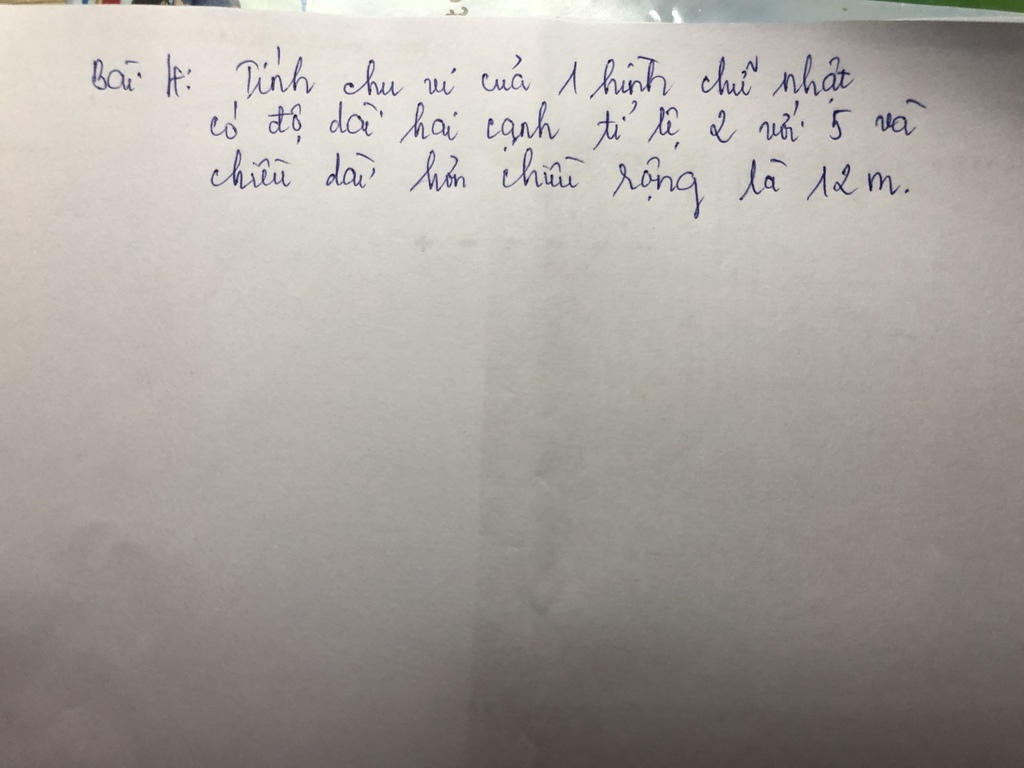 Bài 4: Tính chu vi của 1 hình chữ nhật
có độ dài hai cạnh tỉ lệ 2 với 5 và
chiều dài hơn chiều rộng là 12 m.